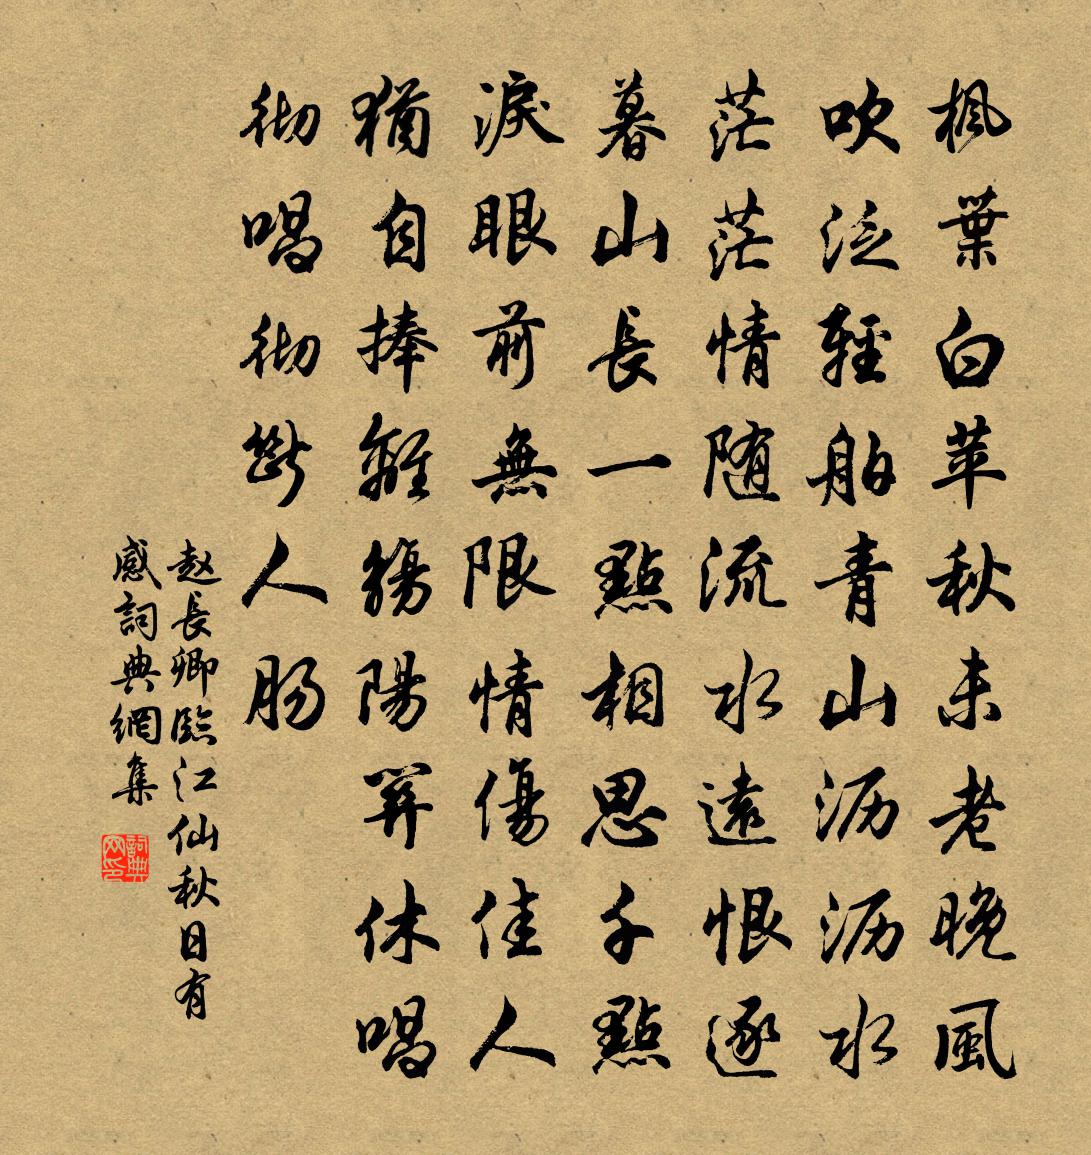 楓葉白苹秋未老晚風
吹泛輕舶青山沥沥水
茫茫情随流水遠恨逐
暮山長一點相思千點
淚眼前無限情傷佳人
猶自捧離觴陽關休唱
彻唱彻斷人肠
赵長卿臨江仙秋日有
感詞典網集
詞典网印